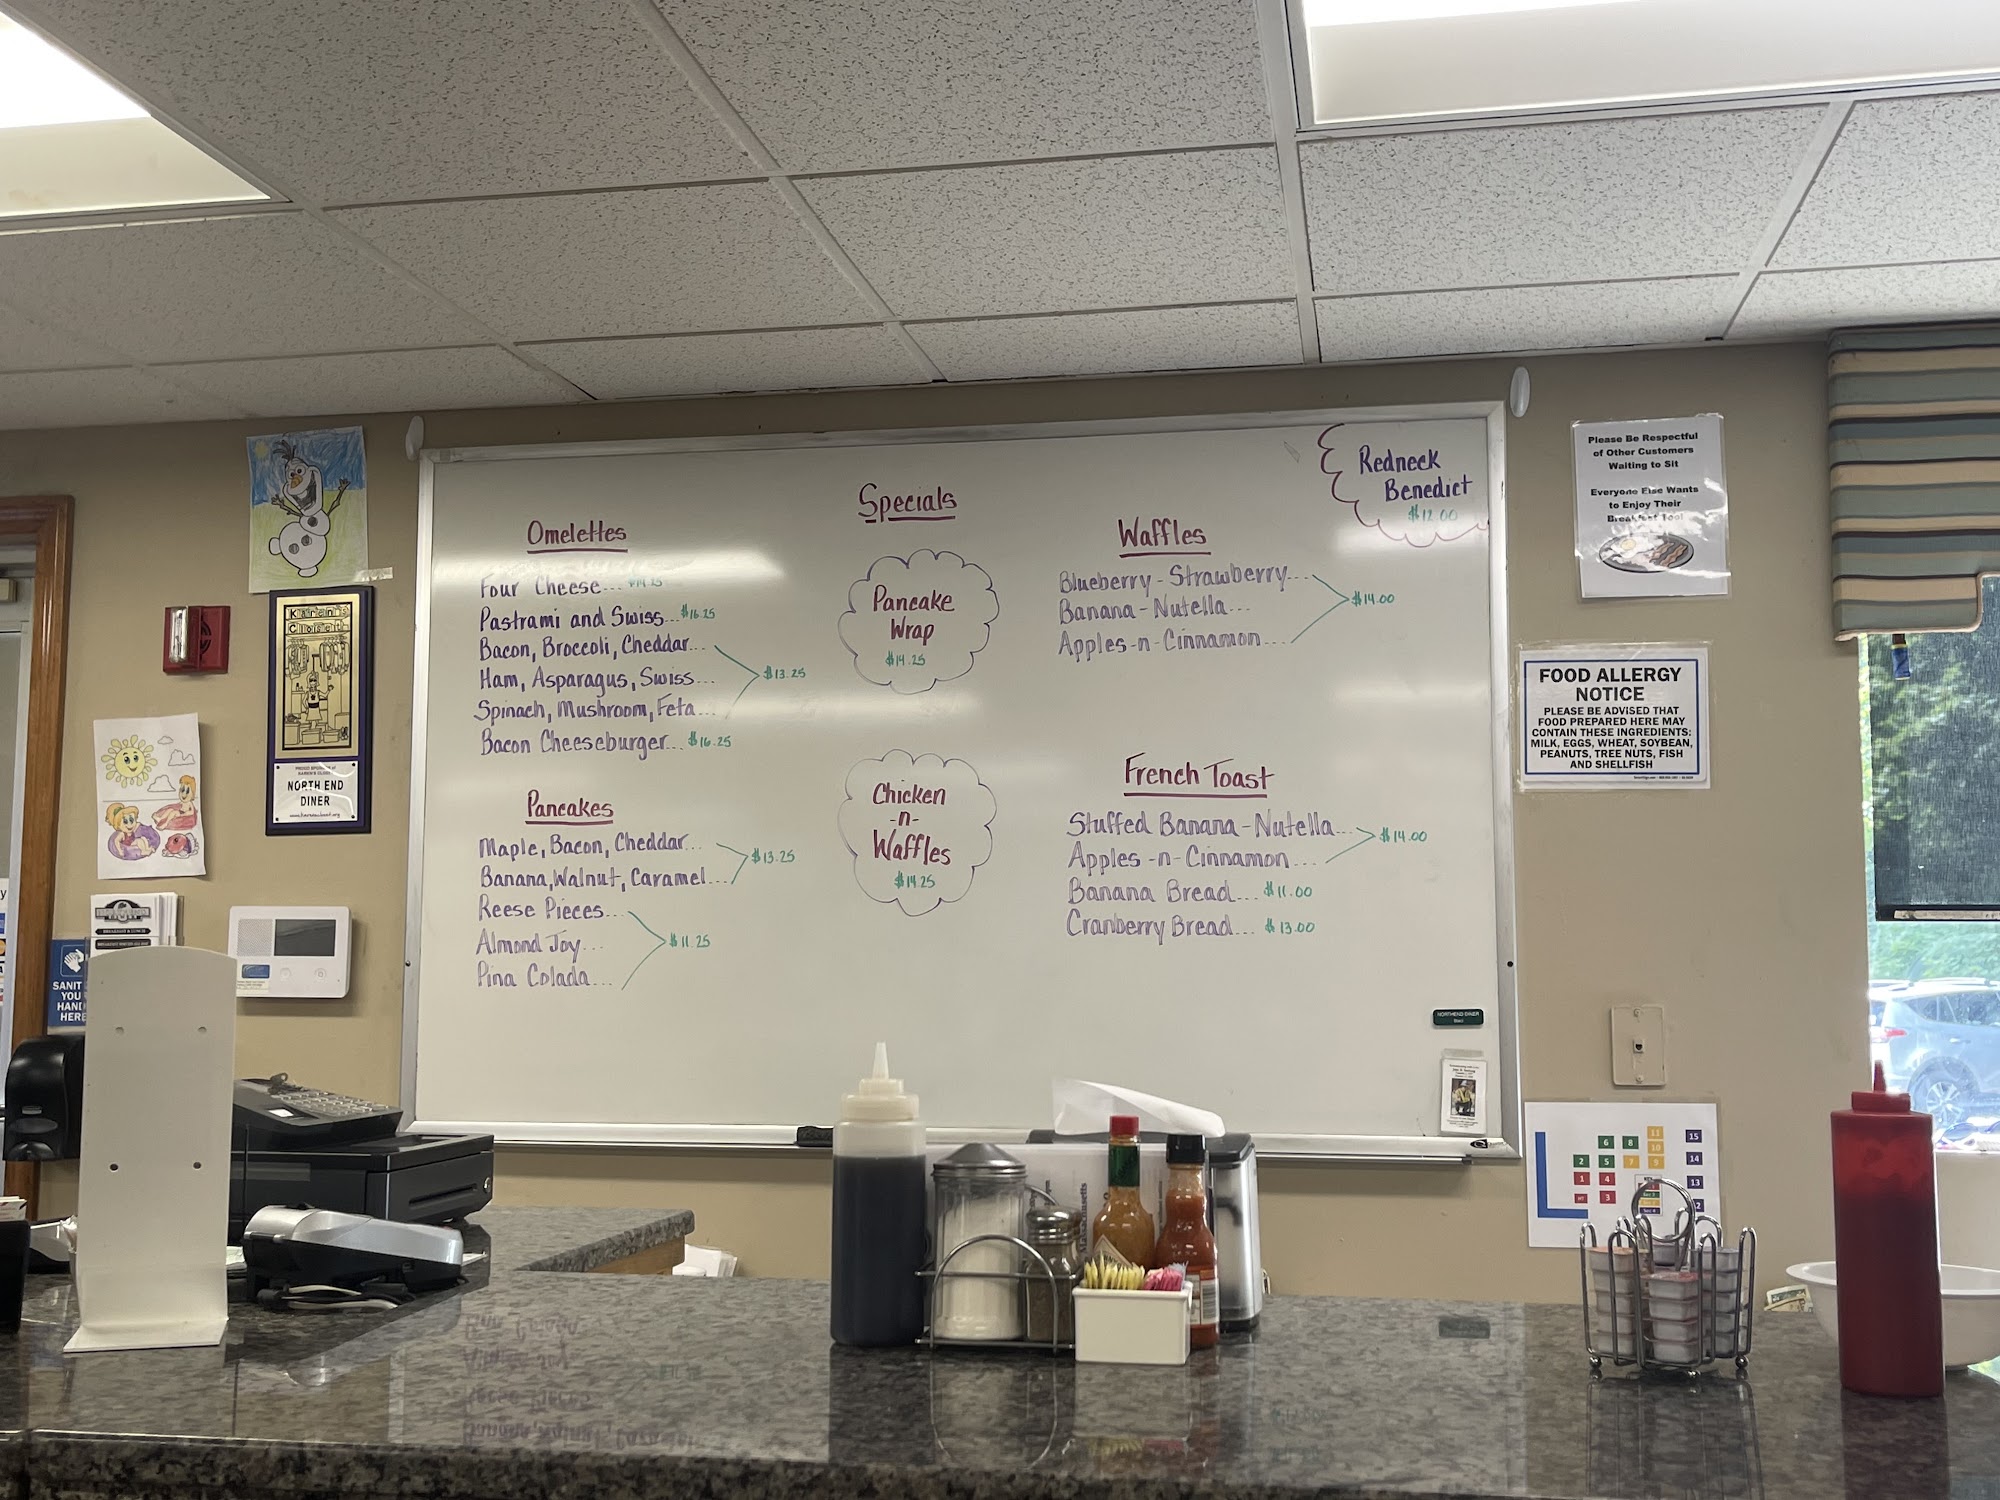 Specials
Omelettes
Four Cheese... $14.25
Pastrami and Swiss... $16.25
Bacon, Broccoli, Cheddar...
Ham, Asparagus, Swiss...
Spinach, Mushroom, Feta...
$13.25
Bacon Cheeseburger... $16.25
Pancakes
Maple, Bacon, Cheddar...
Banana, Walnut, Caramel...
$13.25
Reese Pieces...
Almond Joy...
Pina Colada...
$11.25
Pancake
Wrap
$14.25
Chicken
-n-
Waffles
$14.25
Waffles
Blueberry-Strawberry...
Banana-Nutella...
Apples-n-Cinnamon...
$14.00
French Toast
Stuffed Banana-Nutella...
Apples-n-Cinnamon...
$14.00
Banana Bread... $11.00
Cranberry Bread... $13.00
Redneck
Benedict
$12.00
Please Be Respectful
of Other Customers
Waiting to Sit
Everyone Else Wants
to Enjoy Their
Breakfast Too!
FOOD ALLERGY
NOTICE
PLEASE BE ADVISED THAT
FOOD PREPARED HERE MAY
CONTAIN THESE INGREDIENTS:
MILK, EGGS, WHEAT, SOYBEAN,
PEANUTS, TREE NUTS, FISH
AND SHELLFISH
Karen's
Closet
NORTH END
DINER
SANIT
YOU
HAND
HERE
NORTHEND DINER
11
6 8 10 15
2 5 7 9 14
1 4 13
3